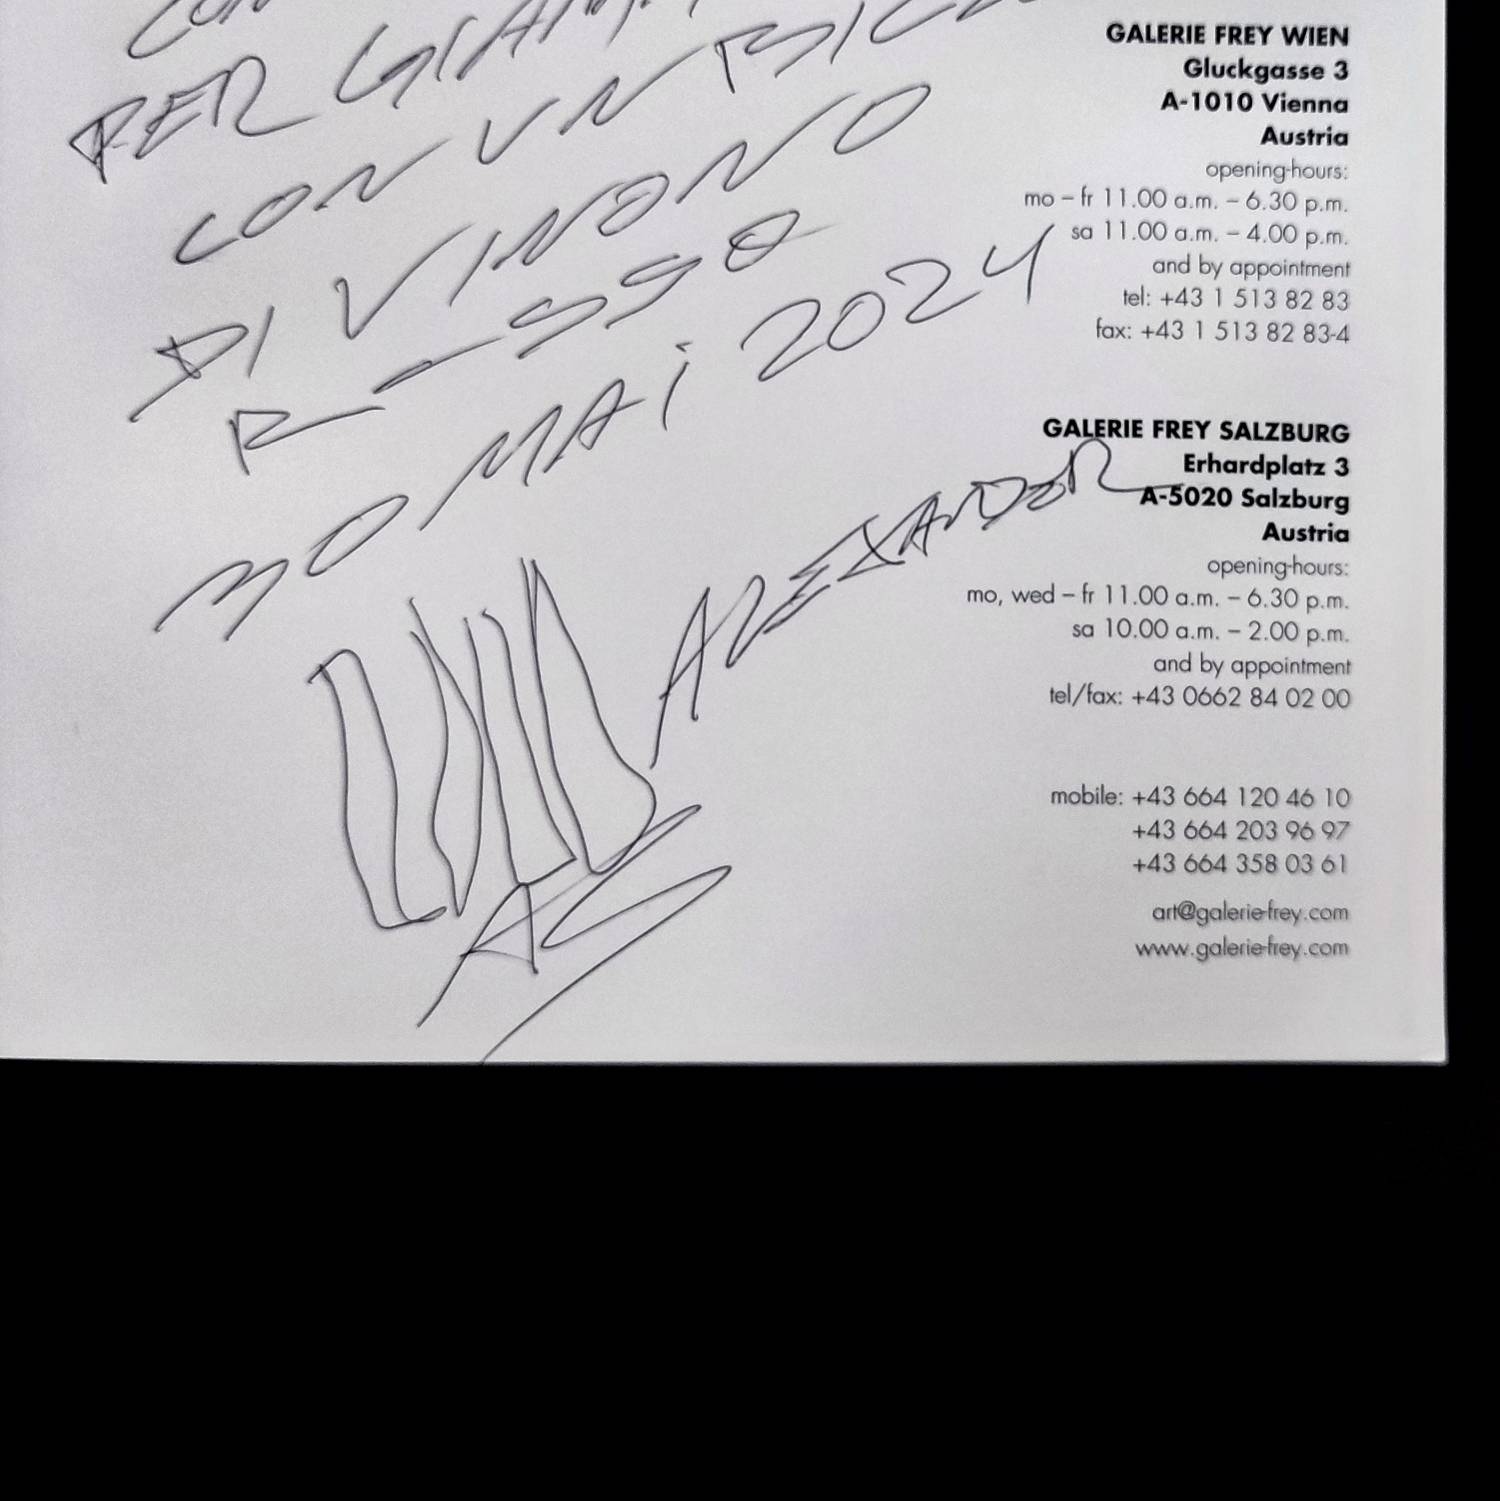 CON
PER
CON UN
DI VINO NO
R—SSO
30 MAi 2024
ALEXANDER
AS
GALERIE FREY WIEN
Gluckgasse 3
A-1010 Vienna
Austria
opening-hours:
mo – fr 11.00 a.m. – 6.30 p.m.
sa 11.00 a.m. – 4.00 p.m.
and by appointment
tel: +43 1 513 82 83
fax: +43 1 513 82 83-4
GALERIE FREY SALZBURG
Erhardplatz 3
A-5020 Salzburg
Austria
opening-hours:
mo, wed – fr 11.00 a.m. – 6.30 p.m.
sa 10.00 a.m. – 2.00 p.m.
and by appointment
tel/fax: +43 0662 84 02 00
mobile: +43 664 120 46 10
+43 664 203 96 97
+43 664 358 03 61
art@galerie-frey.com
www.galerie-frey.com